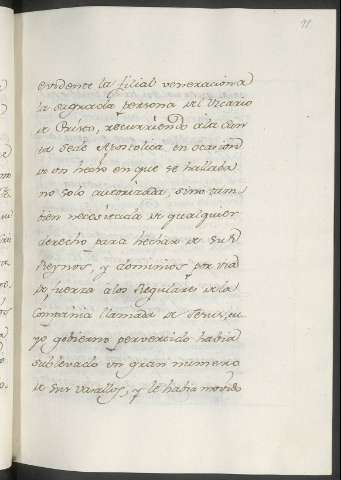 evidente la filial veneracion a
la sagrada persona del Vicario
de Christo, recurriendo à la San
ta Sede Apostolica en ocasion
de un hecho en que se hallaba
no solo autorizada, sino tam
bien necesitada de qualquier
derecho para hechar de sus
Reynos, y dominios por via
de fuerza a los Regulares de la
Compañia llamada de Jesus, cu
yo gobierno pervertido habia
sublevado un gran numero
de sus vasallos, y le habia movido